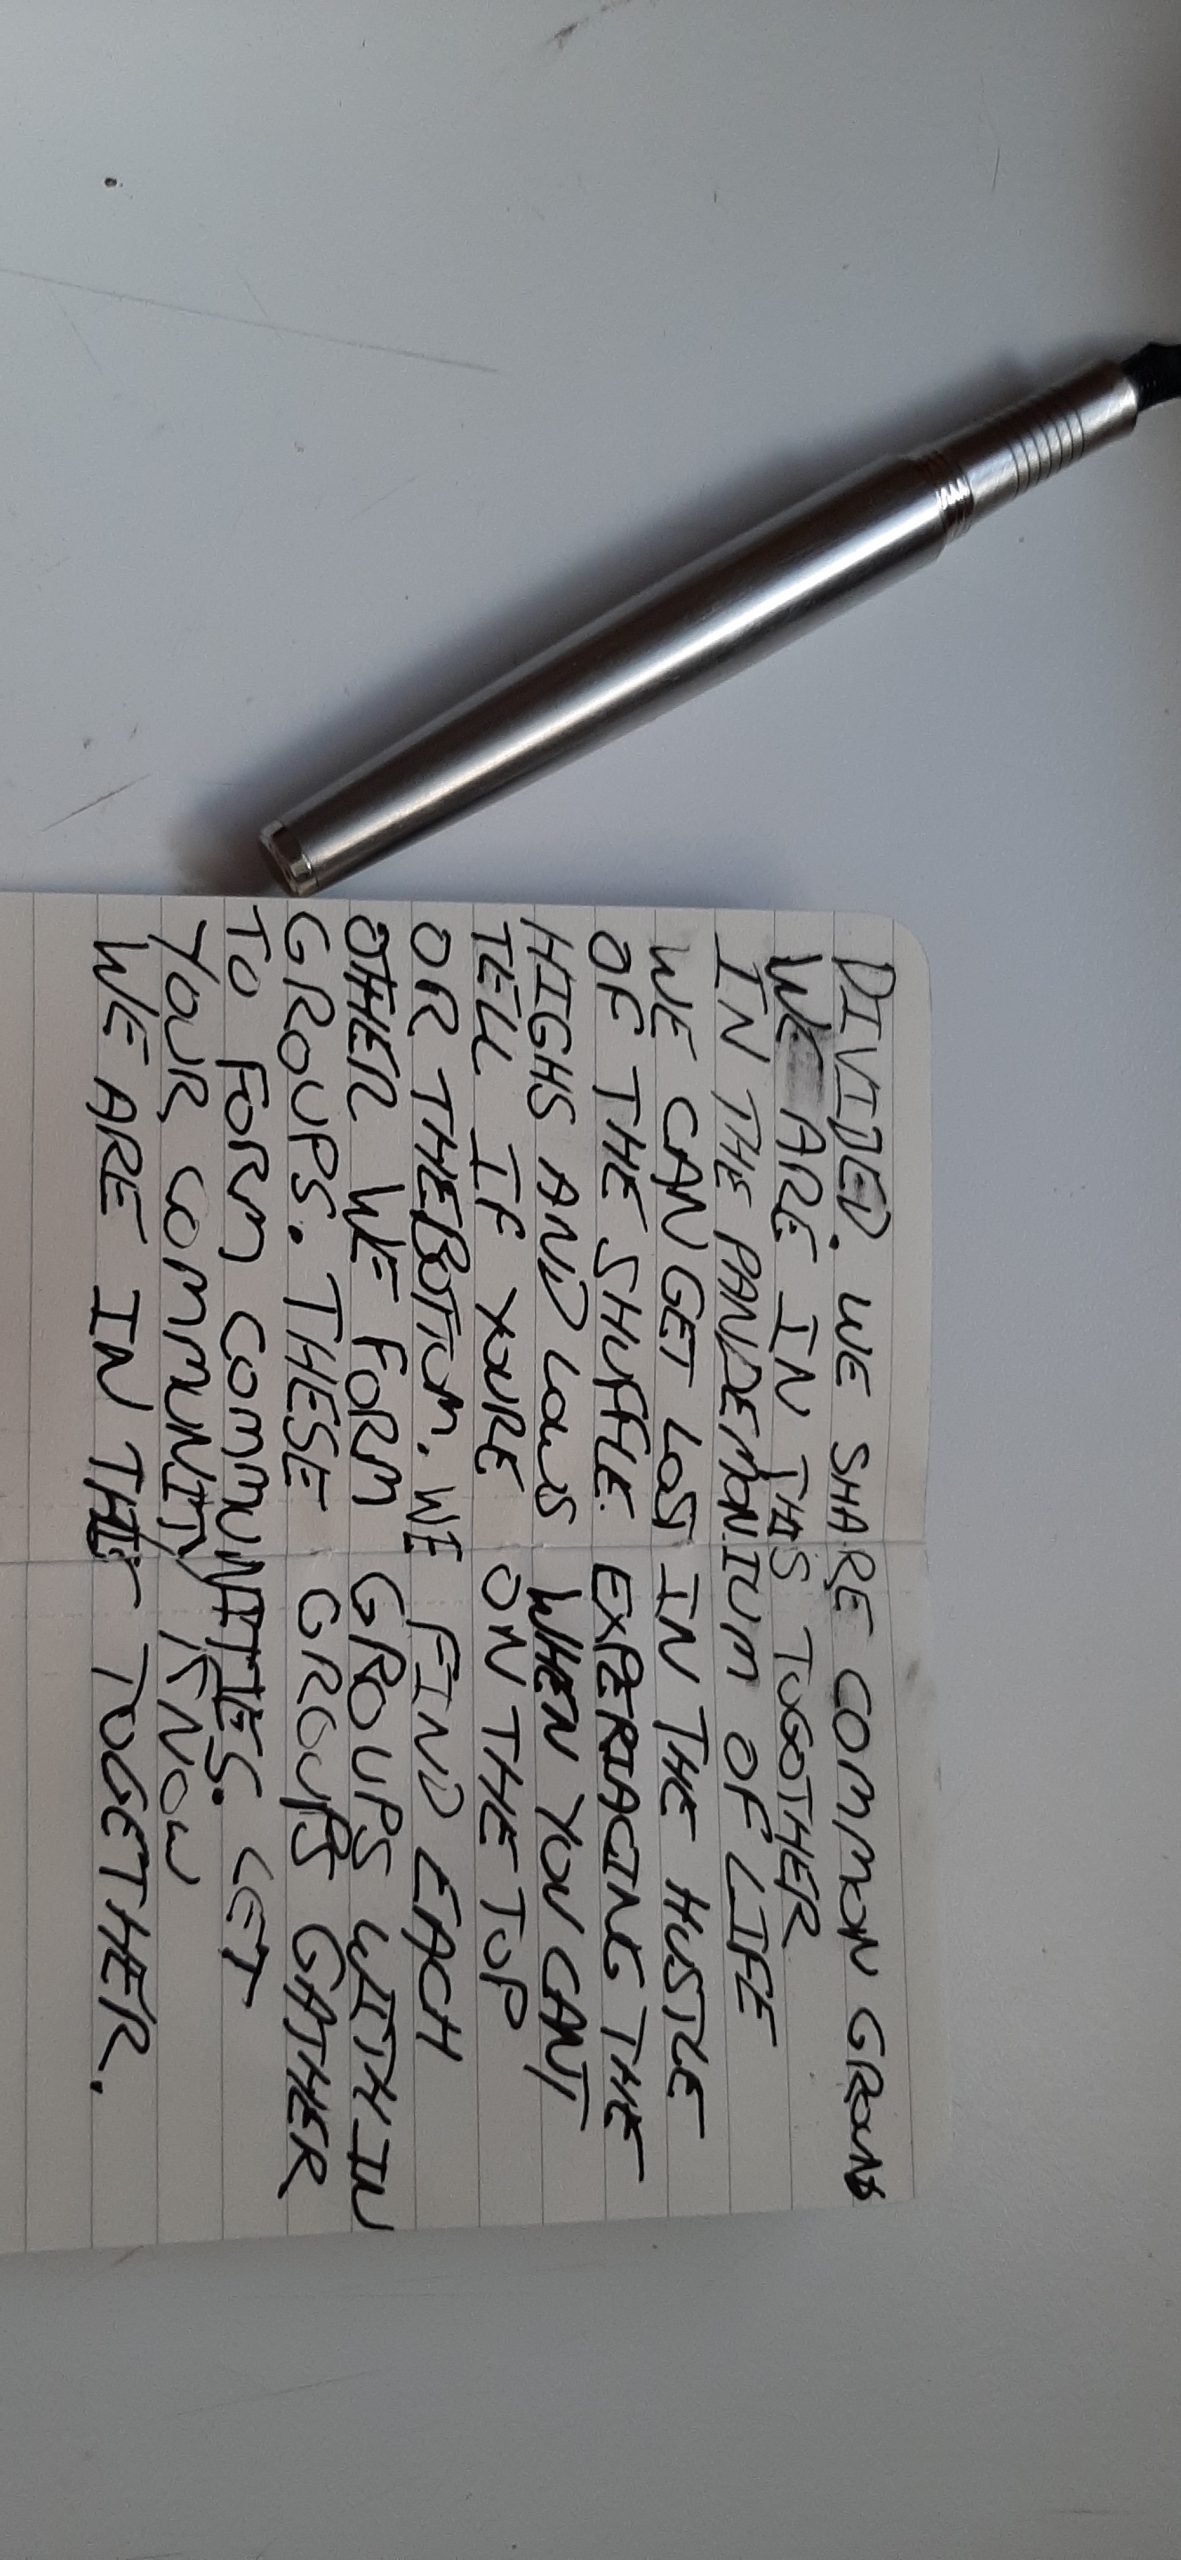 DIVIDED. WE SHARE COMMON GROUND
WE ARE IN THIS TUGOTHER
IN THE PANDEMONIUM OF LIFE
WE CAN GET LOST IN THE HUSTLE
OF THE SHUFFLE. EXPERIACING THE
HIGHS AND LOWS WHEN YOU CANT
TELL IF YOURE ON THE TOP
OR THE BOTTUM. WE FIND EACH
OTHER WE FORM GROUPS WITH IN
GROUPS. THESE GROUPS GATHER
TO FORM COMMUNITIES. LET
YOUR COMMUNITY KNOW
WE ARE IN THIS TOGETHER.